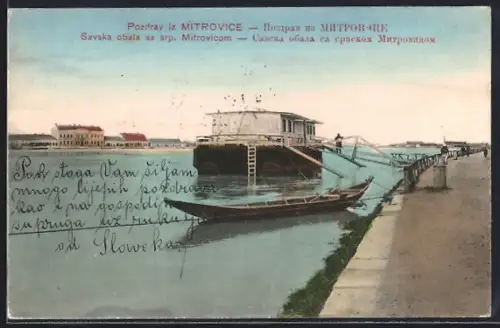 Pozdrav iz MITROVICE — Поздрав из МИТРОВИЦЕ
Savska obala sa srp. Mitrovicom — Савска обала са српском Митровицом
Vam šiljem
mnogo lijepih pozdrava
kao i na gospodj.
suprugu
od Sloweka